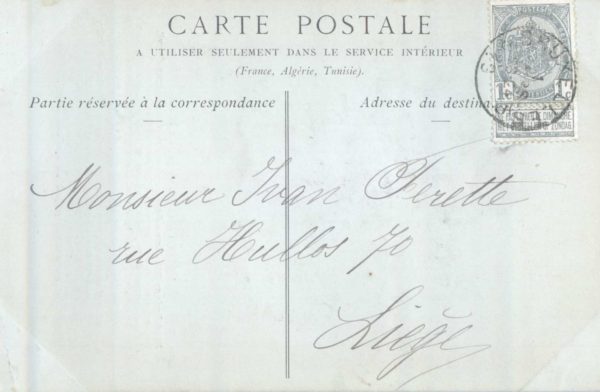 CARTE POSTALE
A UTILISER SEULEMENT DANS LE SERVICE INTÉRIEUR
(France, Algérie, Tunisie).
Partie réservée à la correspondance
Adresse du destina
POSTES
1 c 1 c
Monsieur Ivan Ferette
rue Hullos 70
Liége